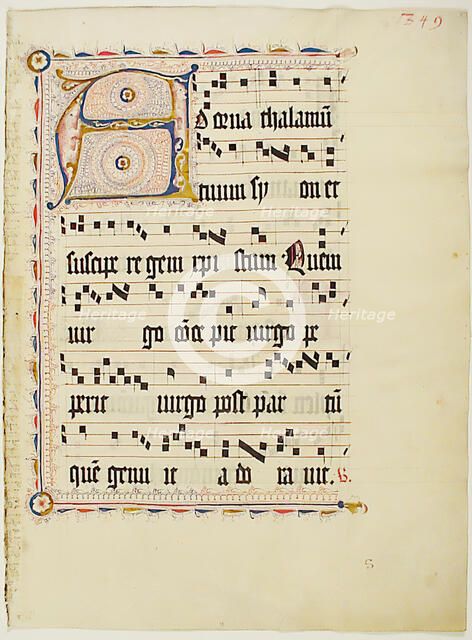 349
Adorna thalamū
tuum sy on et
suscipe regem xpi stum Quem
uir go cōce pit uirgo pe
perit uirgo post par tū
quē genu it a do ra uit. ℣.
S
Heritage Heritage
Heritage Heritage
Heritage Heritage